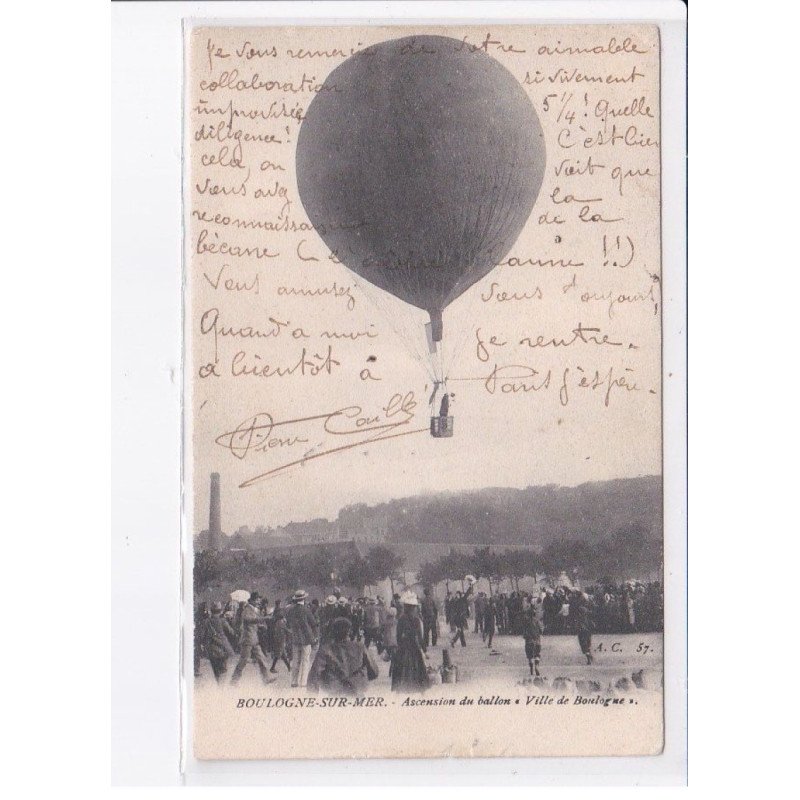 Je vous remercie de votre aimable
collaboration si vivement
improvisée 5 1/4 ! Quelle
diligence ! C'est bien
cela, on voit que
vous avez la
reconnaissance de la
bécane ( !!)
Vous amusez vous toujours
Quand a moi je rentre.
a bientôt à Paris j'espère.
Pierre
A. C. 57.
BOULOGNE-SUR-MER. - Ascension du ballon « Ville de Boulogne ».